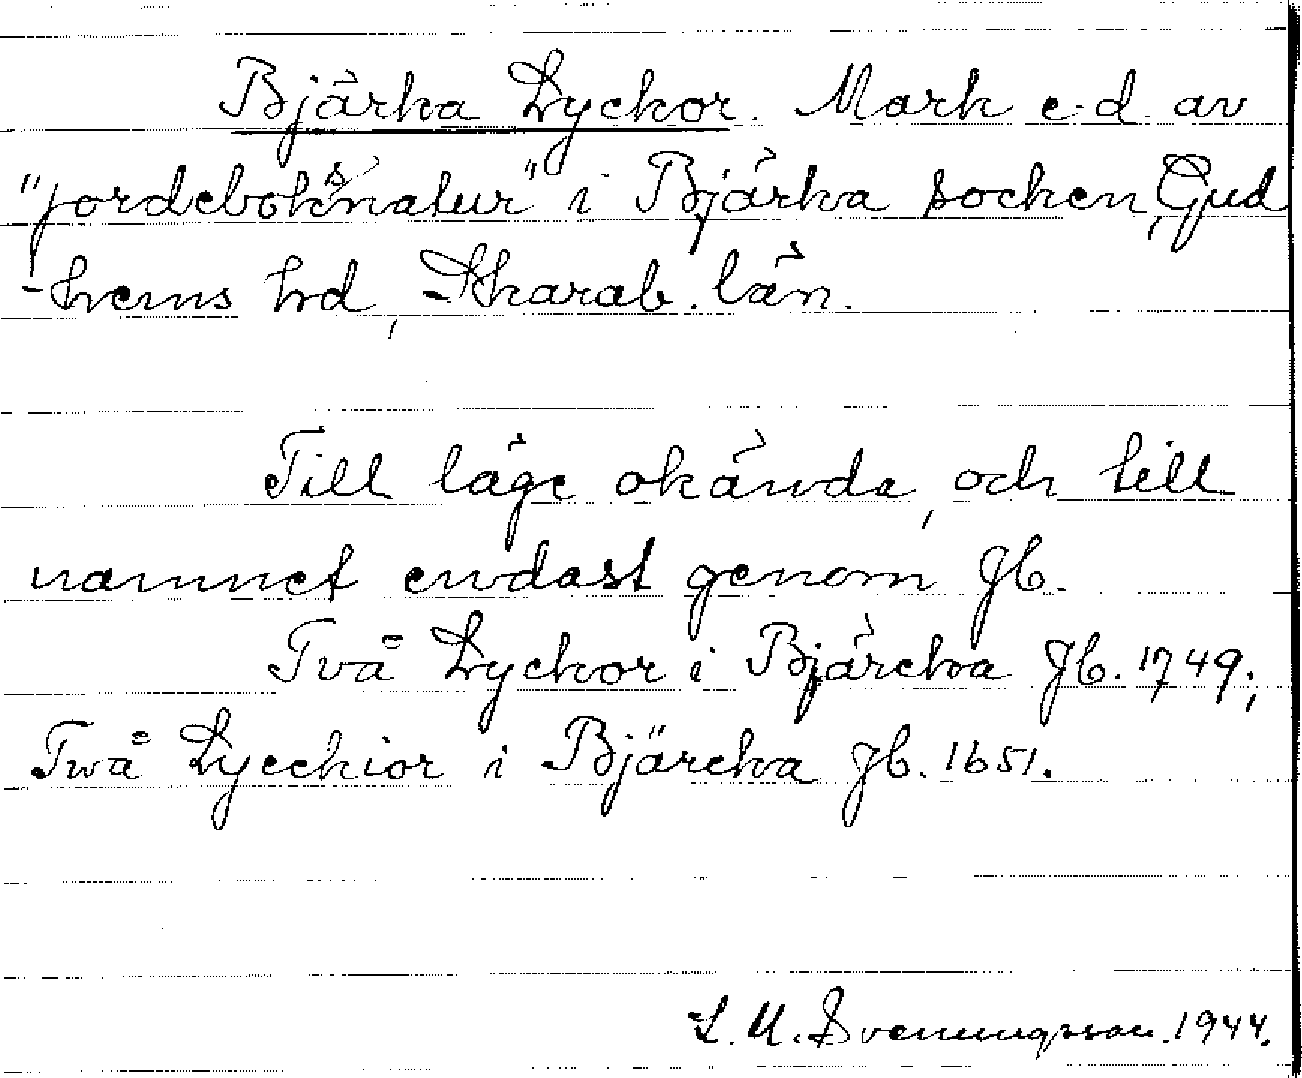 Bjärka Lyckor. Mark e.d. av
"jordeboksnatur" i Bjärka socken, Gud
-hems hd, Skarab. län.
Till läge okända, och till
namnet endast genom Jb.
Två Lyckor i Bjärcka Jb. 1749;
Twå Lyeckior i Bjärcka Jb. 1651.
L. M. Svenungsson. 1944.